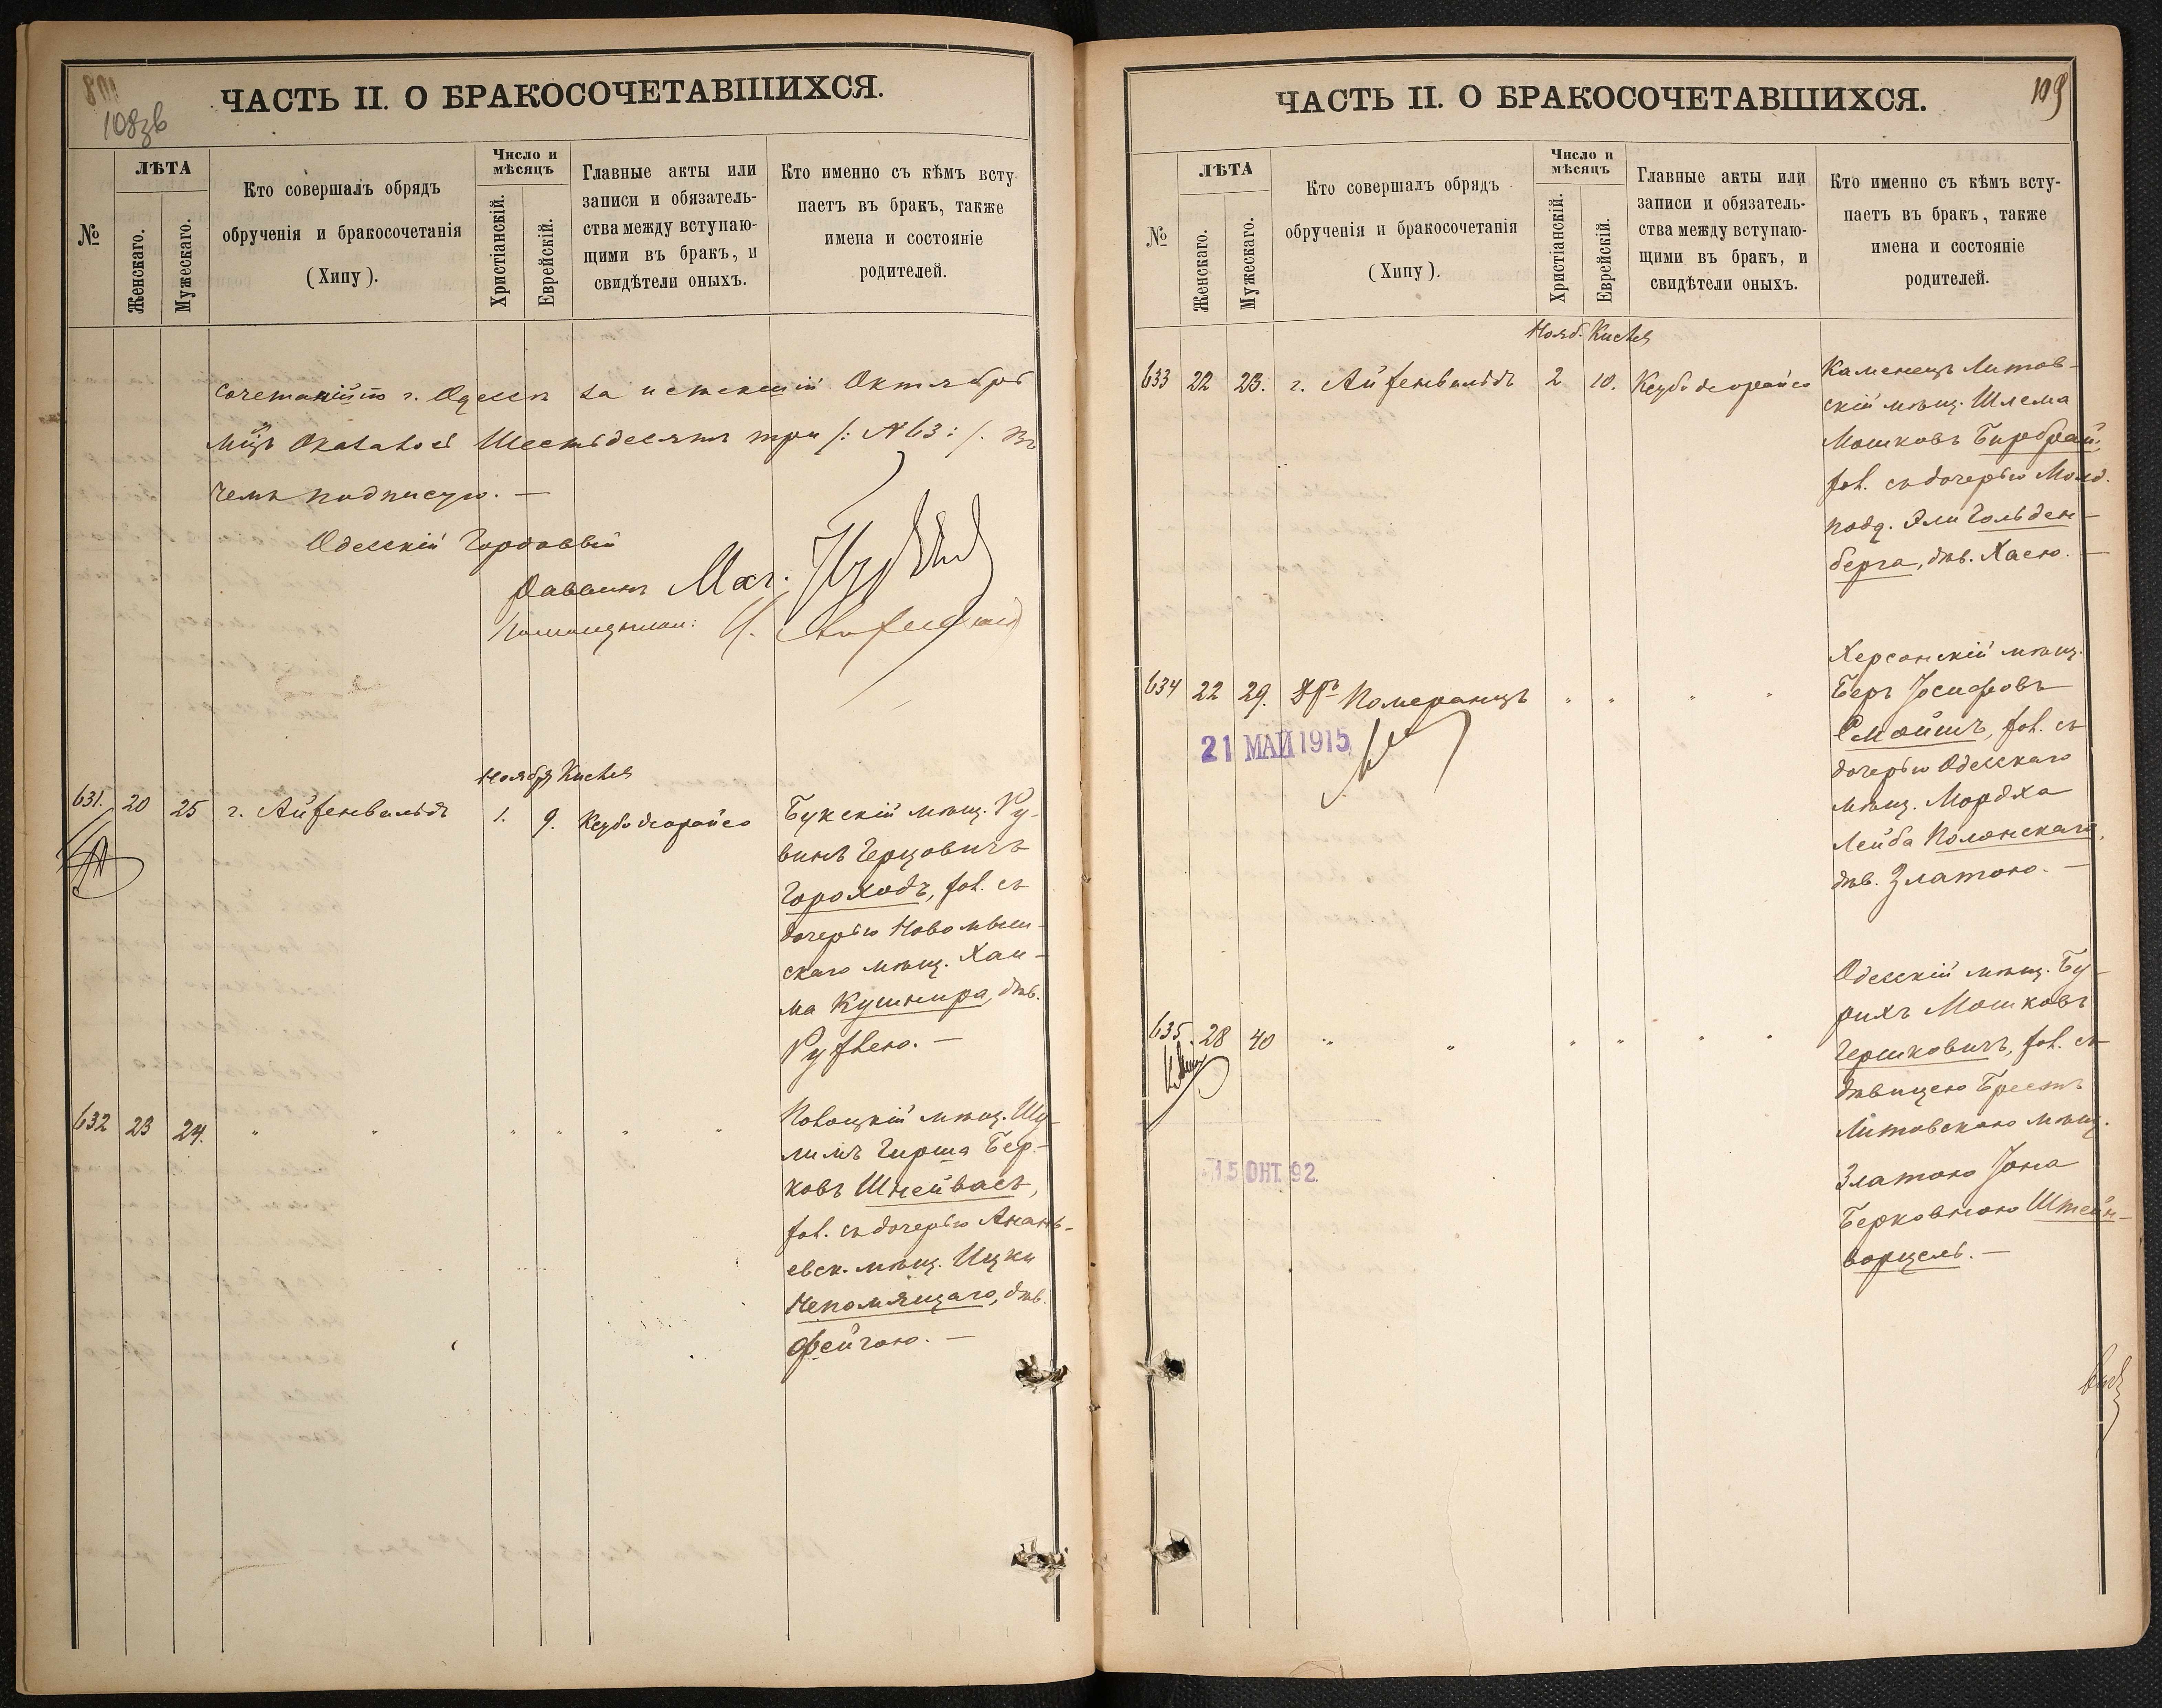 108зв
ЧАСТЬ II. О БРАКОСОЧЕТАВШИХСЯ.
№
ЛѢТА
Женскаго.
Мужескаго.
Кто совершалъ обрядъ
обрученія и бракосочетанія
(Хипу).
Число и
мѣсяцъ
Христіанскій.
Еврейскій.
Главные акты или
записи и обязатель-
ства между вступаю-
щими въ бракъ, и
свидѣтели оныхъ.
Кто именно съ кѣмъ всту-
паетъ въ бракъ, также
имена и состояніе
родителей.
г. Одессѣ за истекшій Октябрь
Шестьдесятъ три /: №63 :/. Въ
чемъ подписую. —
Одесскій Городовый
Раввинъ
Ноябр Кислев
631. 20 25 г. Айзенвальдъ 1. 9. Ксубо деорайсо
Букскій мѣщ. Ру-
винъ Герцовичъ
Городъ, хол. съ
дочерью Новомыш-
скаго мѣщ. Хаи-
ма Кушнира, дѣв.
Рухлею. —
632 23 24. " " " " " "
Полоцкій мѣщ. Шу-
лимъ Гирша Бер-
ковъ Шнейвасъ,
хол. съ дочерью Анань-
евск. мѣщ. Ицки
Непомящаго, дѣв.
Фейгою. —
109
ЧАСТЬ II. О БРАКОСОЧЕТАВШИХСЯ.
№
ЛѢТА
Женскаго.
Мужескаго.
Кто совершалъ обрядъ
обрученія и бракосочетанія
(Хипу).
Число и
мѣсяцъ
Христіанскій.
Еврейскій.
Главные акты или
записи и обязатель-
ства между вступаю-
щими въ бракъ, и
свидѣтели оныхъ.
Кто именно съ кѣмъ всту-
паетъ въ бракъ, также
имена и состояніе
родителей.
Нояб. Кислев
633 22 23. г. Айзенвальдъ 2 10. Ксубо деорайсо
Каменецъ Литов-
скій мѣщ. Шлема
Мошковъ Бирбраи,
хол. съ дочерью Молд.
подд. Эли Гольден-
берга, дѣв. Хаею. —
634 22 29. Дръ Померанцъ " " " "
21 МАЙ 1915
Херсонскій мѣщ.
Беръ Іосифовъ
Смойшъ, хол. съ
дочерью Одесскаго
мѣщ. Мордха
Лейба Полонскаго,
дѣв. Златою. —
635. 28 40 " " " " " "
15 ОКТ. 92.
Одесскій мѣщ. Бу-
рихъ Мошковъ
Гершковичъ, хол. съ
дѣвицею Брестъ
Литовскою мѣщ.
Златою Іона
Берковною Штейн-
ворцель. —